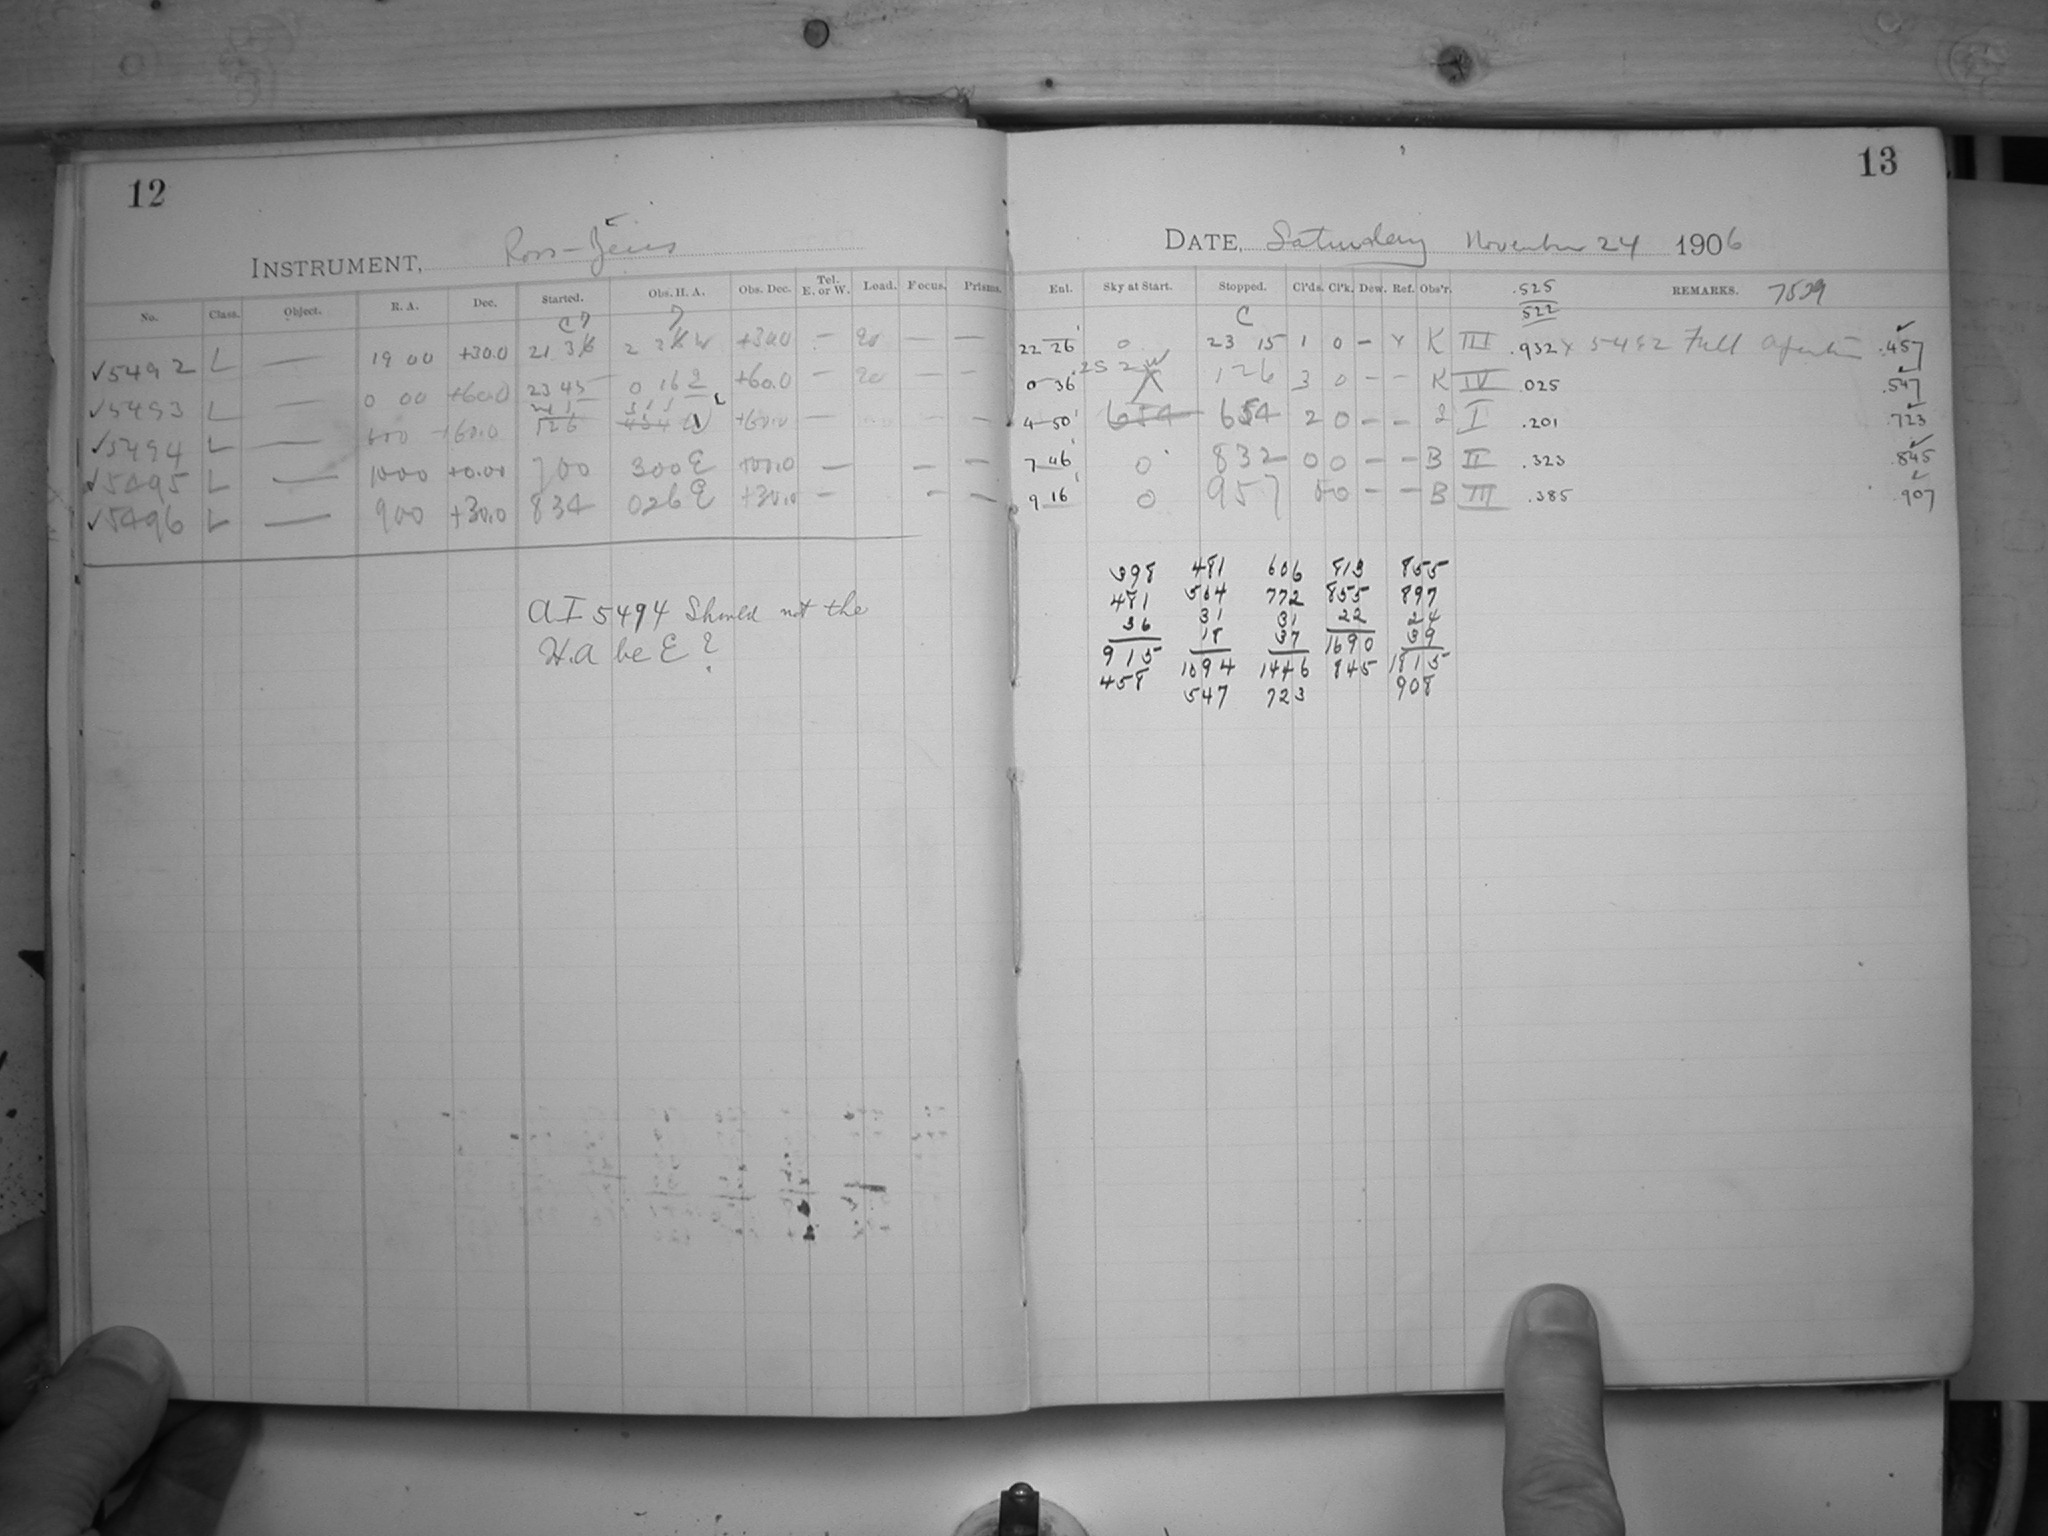 12
INSTRUMENT, Ross-Zeiss
No. Class. Object. R. A. Dec. Started. Obs. H. A. Obs. Dec. Tel. E. or W. Load. Focus. Prisms.
✓5492 L — 19 00 +30.0 21 36 +30.0 — 20 — —
✓5493 L — 0 00 +60.0 23 45 0 16 +60.0 — 20 — —
✓5494 L — +60.0 —
✓5495 L — 1000 +0.00 700 300 E — — —
✓5496 L — 900 +30.0 834 026 E +30.0 — — —
A I 5494 Should not the
H.A be E?
13
DATE, Saturday November 24 1906
Ent. Sky at Start. Stopped. Cl'ds. Cl'k. Dew. Ref. Obs'r. .525 REMARKS. 7529
522
C
22 26 0 23 15 1 0 – K III .932 x 5492 Full .457
0 36 126 3 0 – – K IV .025 .547
4 50 654 654 2 0 – – I .201 .723
7 46 0 832 0 0 – – B II .323 .845
9 16 0 957 0 – – B III .385 .907
398 481 606 813 855
481 564 772 855 897
36 31 31 22 24
915 18 37 1690 39
458 1094 1446 845 1815
547 723 908